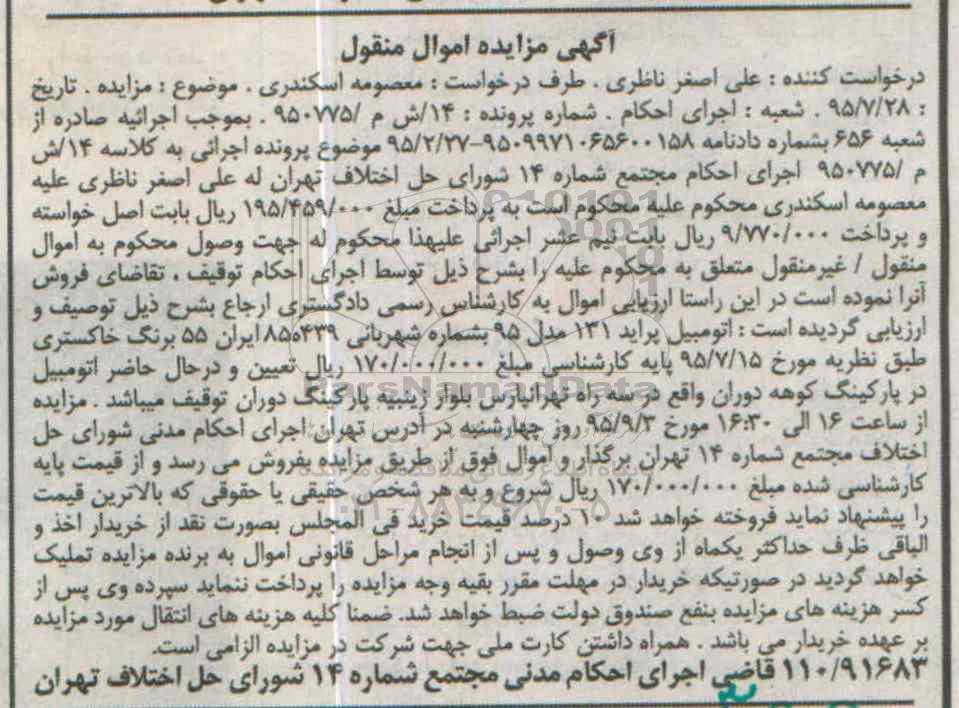 آگهی مزایده اموال منقول
درخواست کننده : علی اصغر ناظری . طرف درخواست : معصومه اسکندری . موضوع : مزایده . تاریخ
: ۹۵/۷/۲۸ . شعبه : اجرای احکام . شماره پرونده : ۱۴/ش م /۹۵۰۷۷۵ . بموجب اجرائیه صادره از
شعبه ۶۵۶ بشماره دادنامه ۹۵۰۹۹۷۱۰۶۵۶۰۰۱۵۸-۹۵/۲/۲۷ موضوع پرونده اجرائی به کلاسه ۱۴/ش
م /۹۵۰۷۷۵ اجرای احکام مجتمع شماره ۱۴ شورای حل اختلاف تهران له علی اصغر ناظری علیه
معصومه اسکندری محکوم علیه محکوم است به پرداخت مبلغ ۱۹۵/۴۵۹/۰۰۰ ریال بابت اصل خواسته
و پرداخت ۹/۷۷۰/۰۰۰ ریال بابت نیم عشر اجرائی علیهذا محکوم له جهت وصول محکوم به اموال
منقول / غیرمنقول متعلق به محکوم علیه را بشرح ذیل توسط اجرای احکام توقیف . تقاضای فروش
آنرا نموده است در این راستا ارزیابی اموال به کارشناس رسمی دادگستری ارجاع بشرح ذیل توصیف و
ارزیابی گردیده است : اتومبیل پراید ۱۳۱ مدل ۹۵ بشماره شهربانی ۸۵ه۴۳۹ ایران ۵۵ برنگ خاکستری
طبق نظریه مورخ ۹۵/۷/۱۵ پایه کارشناسی مبلغ ۱۷۰/۰۰۰/۰۰۰ ریال تعیین و درحال حاضر اتومبیل
در پارکینگ کوهه دوران واقع در سه راه تهرانپارس بلوار زینبیه پارکینگ دوران توقیف میباشد . مزایده
از ساعت ۱۶ الی ۱۶:۳۰ مورخ ۹۵/۹/۳ روز چهارشنبه در آدرس تهران اجرای احکام مدنی شورای حل
اختلاف مجتمع شماره ۱۴ تهران برگذار و اموال فوق از طریق مزایده بفروش می رسد و از قیمت پایه
کارشناسی شده مبلغ ۱۷۰/۰۰۰/۰۰۰ ریال شروع و به هر شخص حقیقی یا حقوقی که بالاترین قیمت
را پیشنهاد نماید فروخته خواهد شد ۱۰ درصد قیمت خرید فی المجلس بصورت نقد از خریدار اخذ و
الباقی ظرف حداکثر یکماه از وی وصول و پس از انجام مراحل قانونی اموال به برنده مزایده تملیک
خواهد گردید در صورتیکه خریدار در مهلت مقرر بقیه وجه مزایده را پرداخت ننماید سپرده وی پس از
کسر هزینه های مزایده بنفع صندوق دولت ضبط خواهد شد. ضمنا کلیه هزینه های انتقال مورد مزایده
بر عهده خریدار می باشد . همراه داشتن کارت ملی جهت شرکت در مزایده الزامی است.
۱۱۰/۹۱۶۸۳ قاضی اجرای احکام مدنی مجتمع شماره ۱۴ شورای حل اختلاف تهران
ParsNamadData